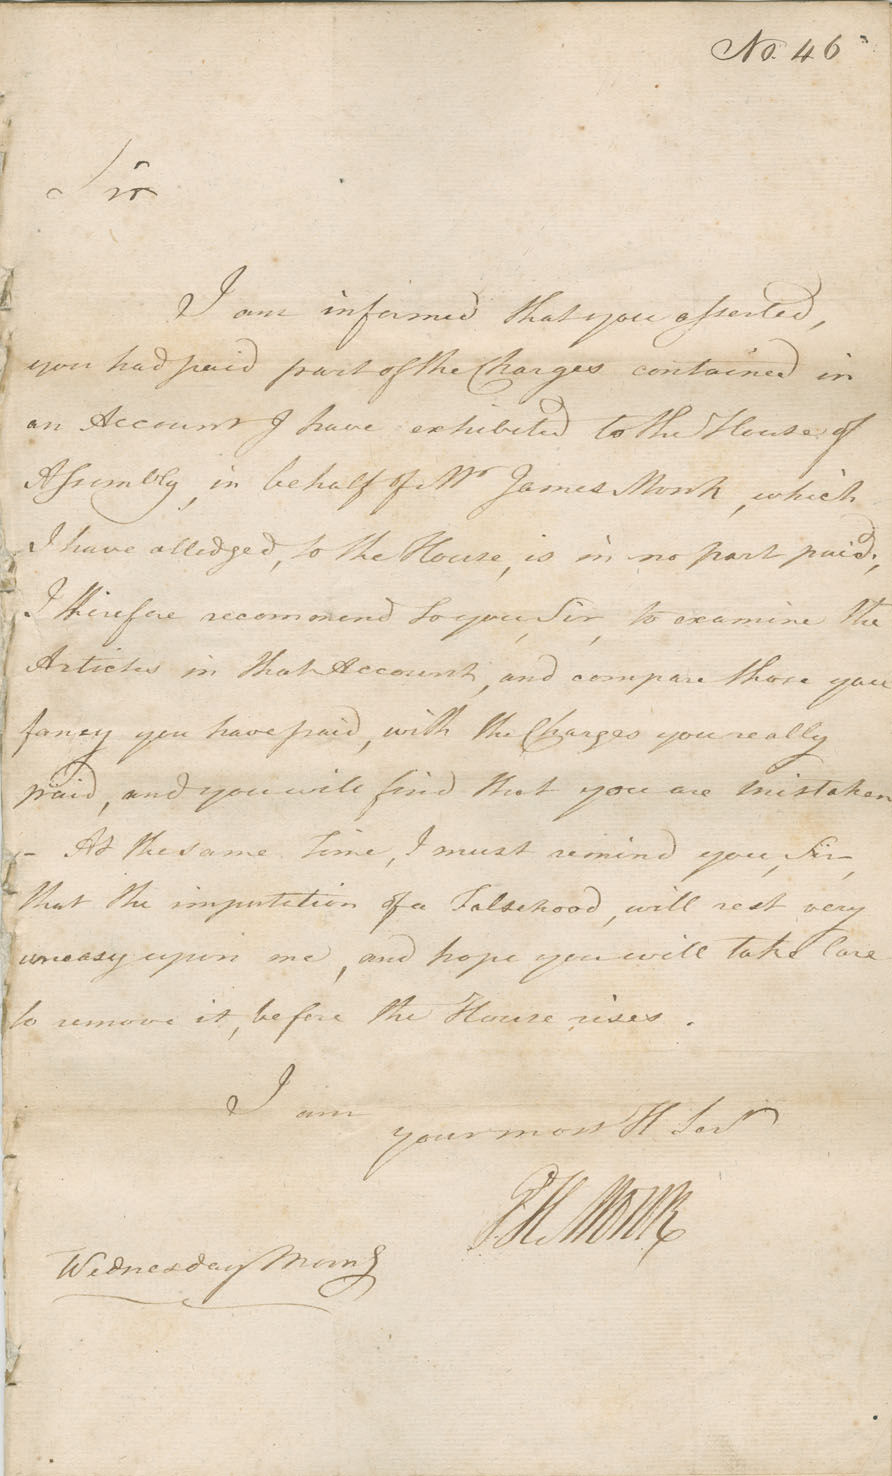 No. 46
Sir
I am informed that you asserted,
you had paid part of the Charges contained in
an Account I have exhibited to the House of
Assembly, in behalf of Mr James Monk, which
I have alledged, to the House, is in no part paid;,
I therefore recommend to you, Sir, to examine the
Articles in that Account, and compare those you
fancy you have paid, with the Charges you really
paid, and you will find that you are mistaken
– At the same time, I must remind you, Sir,
that the imputation of a Falsehood, will rest very
uneasy upon me, and hope you will take Care
to remove it, before the House rises.
I am
your most H Servt
G. H. Monk
Wednesday Morng